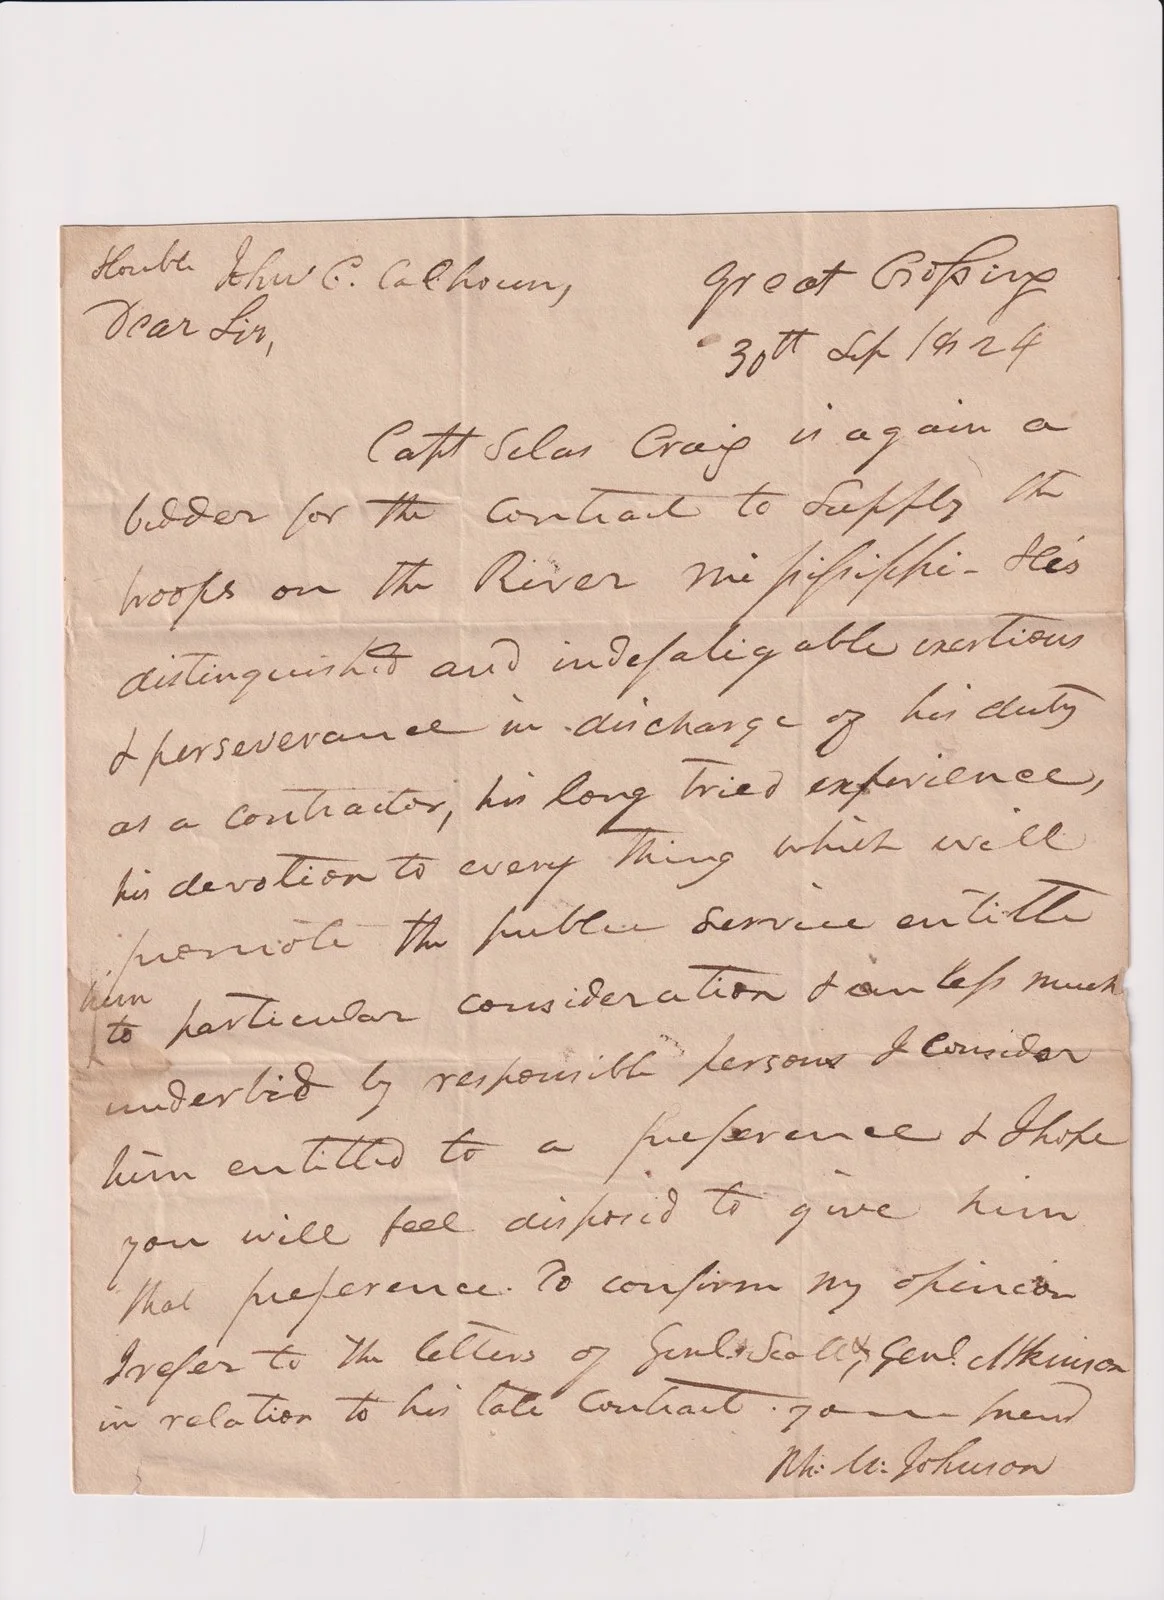 Honble John C. Calhoun,
Great Crossing
Dear Sir,
30th Sep 1824
Capt Selas Craig is again a
bidder for the contract to supply the
troops on the River Mississippi - His
distinguished and indefatigable exertions
& perseverance in discharge of his duty
as a contractor, his long tried experience,
his devotion to every thing which will
promote the public service entitle
him
to particular consideration & unless much
underbid by responsible persons I consider
him entitled to a preference & I hope
you will feel disposed to give him
that preference. To confirm my opinion
I refer to the letters of Genl. Scott & Genl. Atkinson
in relation to his late contract. yo friend
Rh: M: Johnson